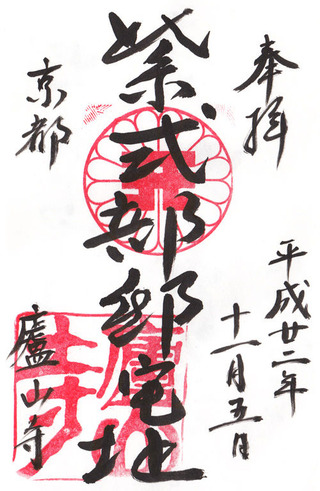 奉拝
平成廿二年
十一月五日
紫式部邸宅址
京都
廬山寺